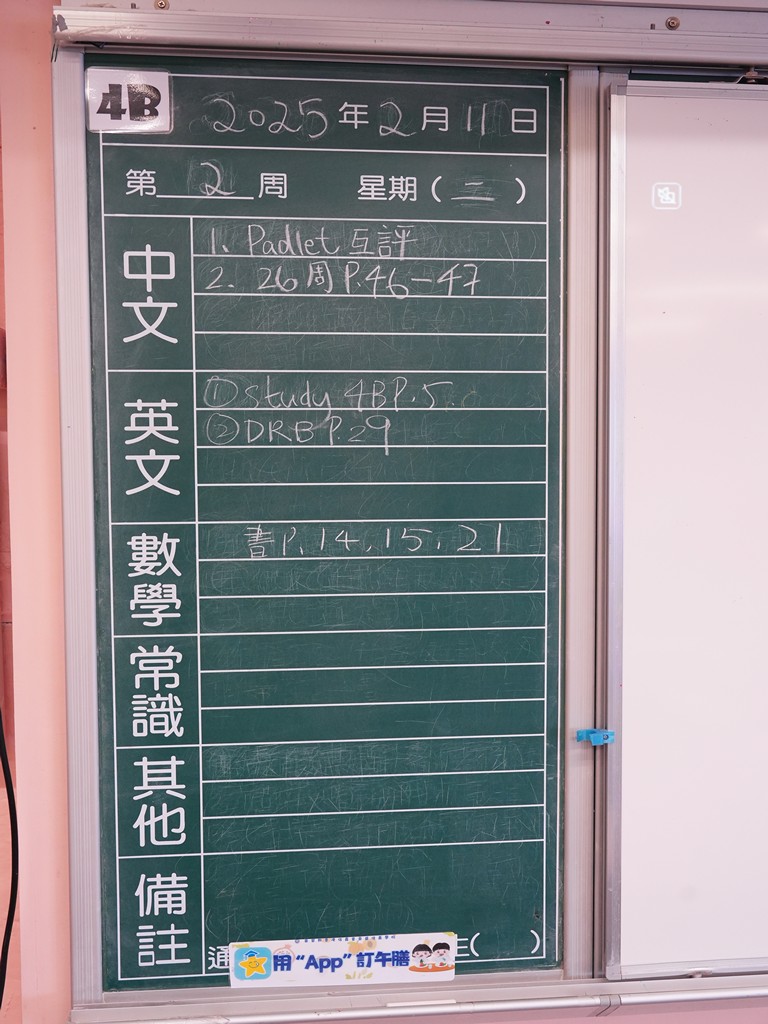 4B
2025年2月11日
第2周 星期(二)
中文
1. Padlet 互評
2. 26周 P.46-47
英文
①study 4BP.5.
②DRB P.29
數學
書P.14,15,21
常識
其他
備註
通
用“App”訂午膳
( )